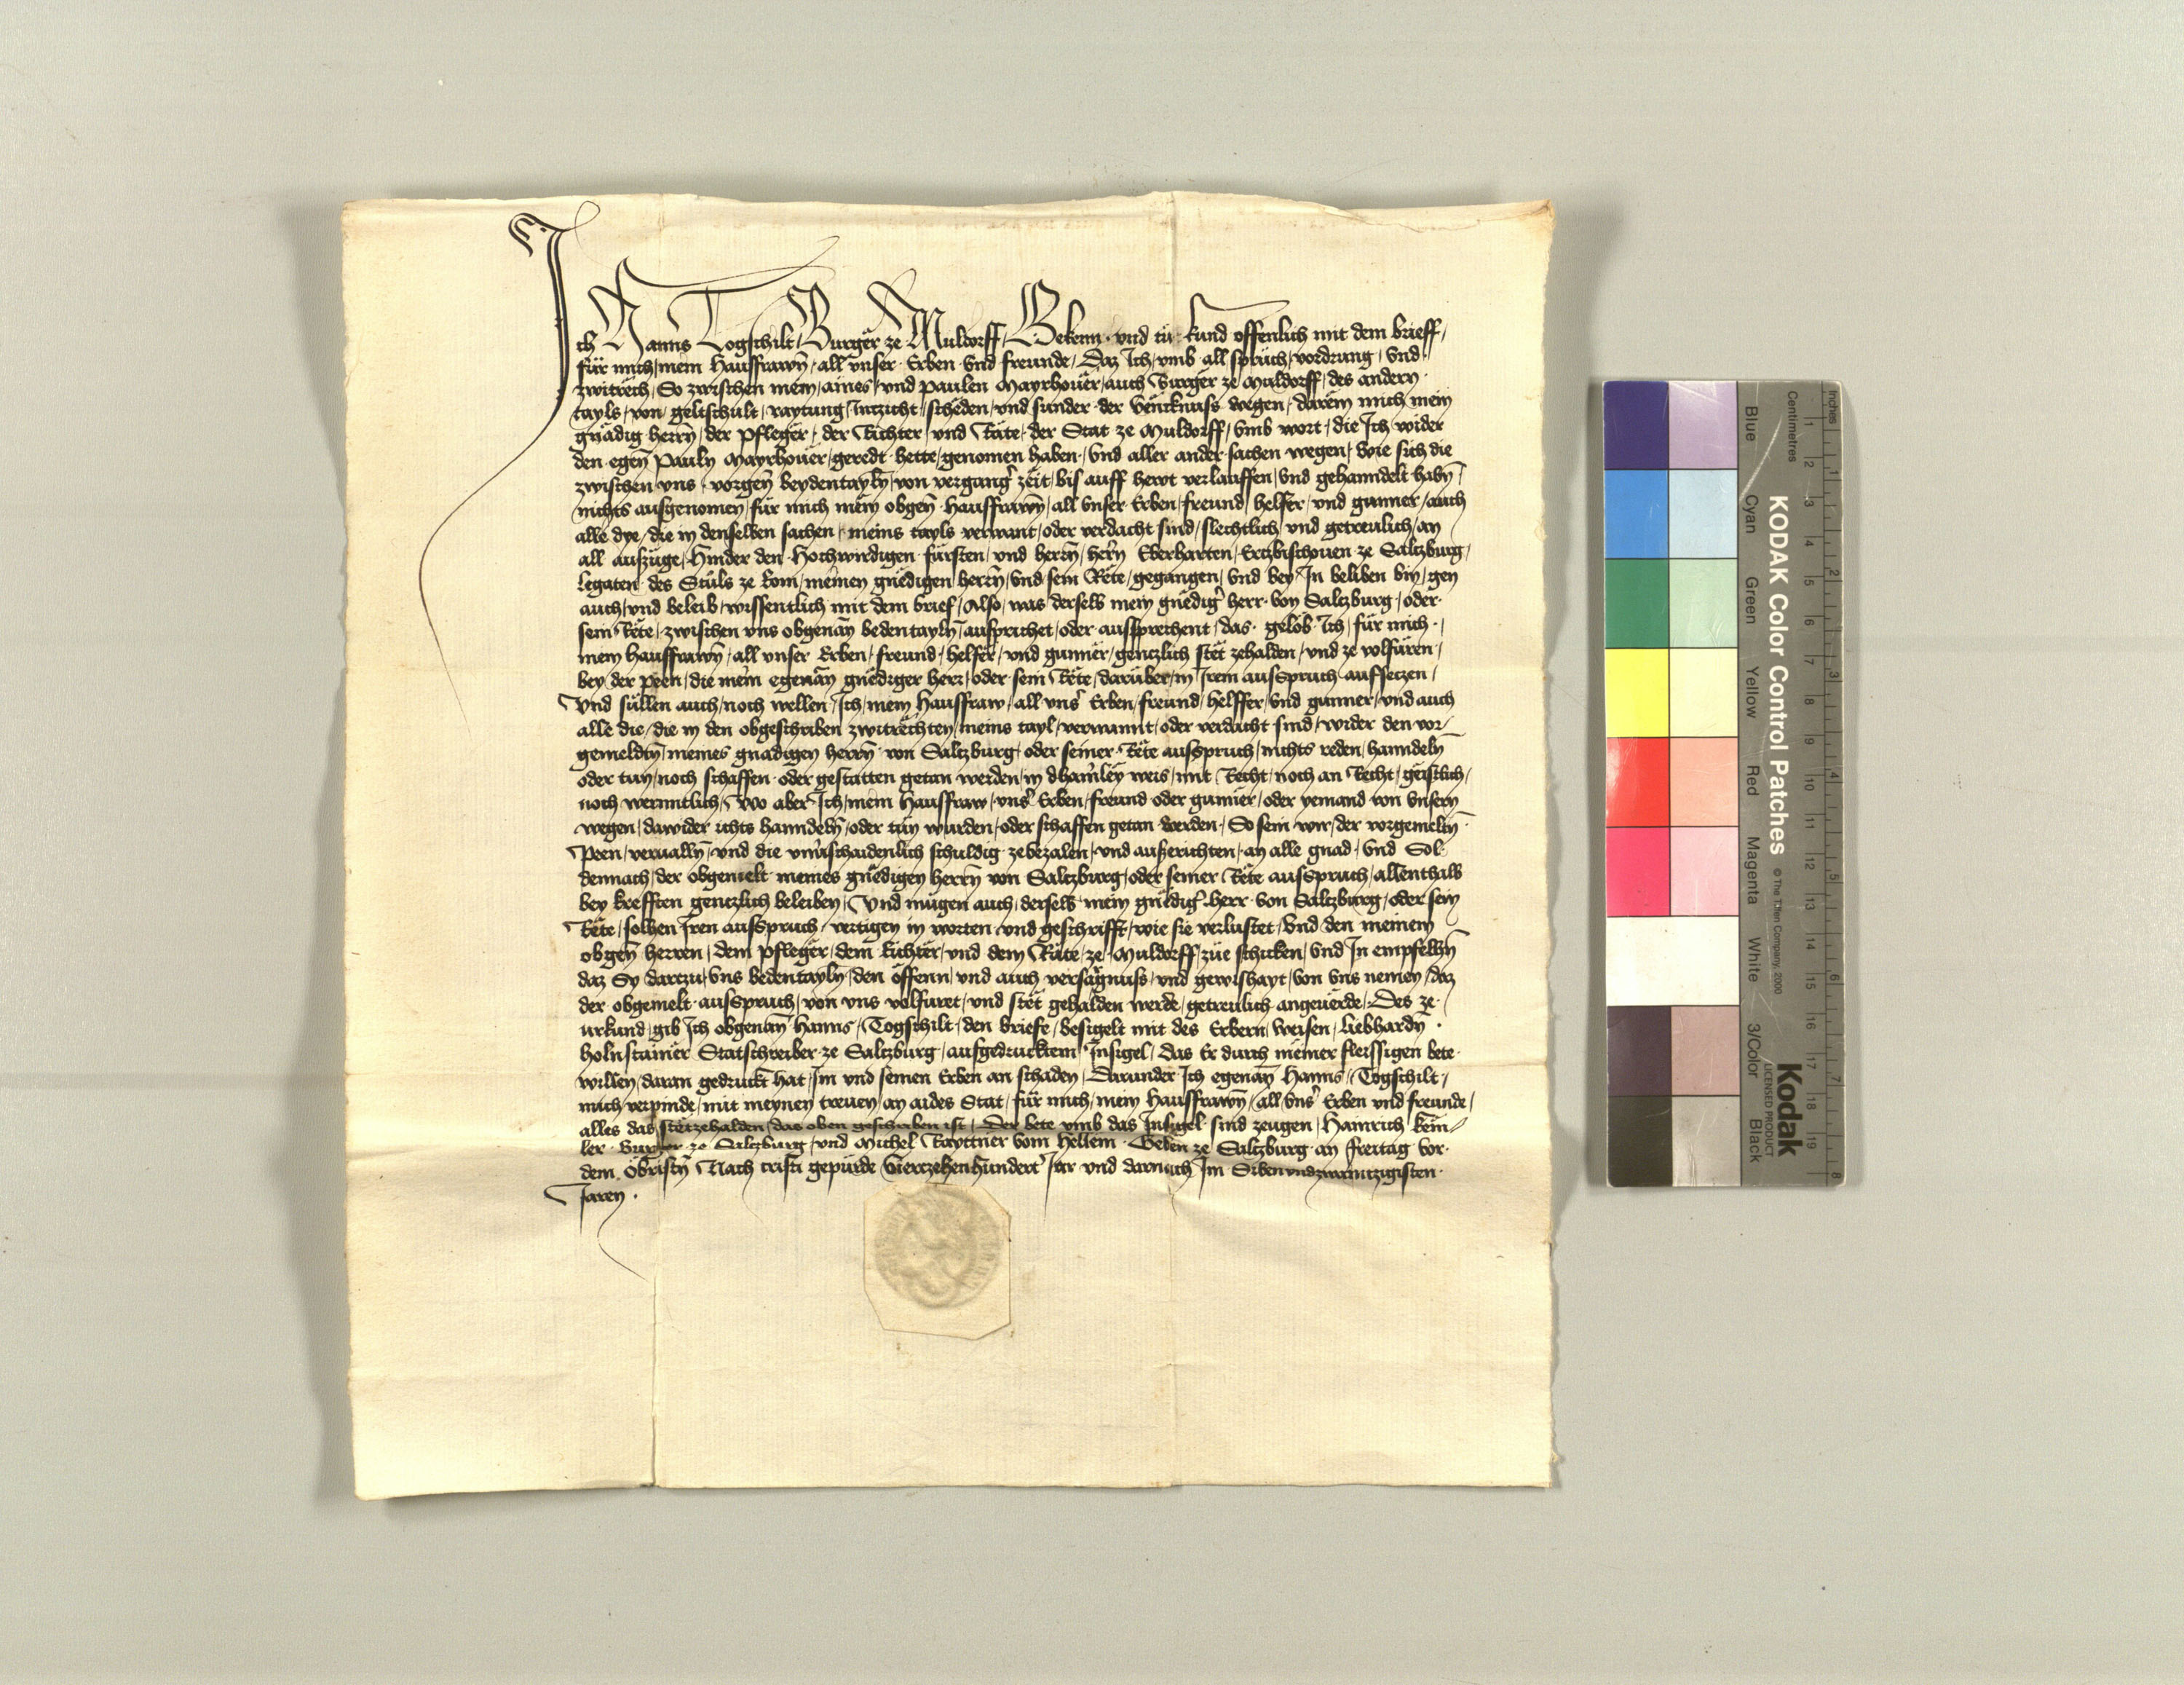 Ich Hanns Togschilt / Burger ze Muldorff / Bekenn · vnd tu kund offenlich mit dem brieff /
für mich / mein Hausfrawn̄ / all vnser Erben vnd freunde / Daz Ich / vmb all sprüch / vordrung / vnd
zwitrëch / So zwischen mein / aines / vnd paulen Mayrhouër / auch Burger ze Muldorff / des andern
tayls / von geltschult / raytung / Intzicht / schëden / vnd sunder der vënknüss wegen / darein mich mein
gnädig herrn̄ / der pfleger / der Richter / vnd Räte / der Stat ze Muldorff / vmb wort / die Ich wider
den egen̄ Pauln Mayrhouër / geredt hette / genomen haben / vnd aller ander sachen wegen / wie sich die
zwischen vns / vorgen̄ beydentayln̄ / von vergang̉ zeit / bis auff hewt verlauffen / vnd gehanndelt habn̄ /
nichts ausgenomen / für mich mein obgen̄ Hausfrawn̄ / all vnser Erben / freund / helfer / vnd gunner / auch
alle dye / die in denselben sachen / meins tayls verwant / oder verdacht sind / slechtlich / vnd getreulich / an
all auszüge / Hinder den Hochwirdigen fürsten / vnd herrn̄ / hern̄ Eberharten / Ertzbischouen ze Saltzburg /
Legaten des Stüls ze Rom / meinen gnëdigen herrn̄ / vnd sein Rëte / gegangen / vnd bey In beliben bin / gen
auch / vnd beleib / wissentlich mit dem brief / Also / was derselb mein gnëdig̉ herr von Saltzburg / oder
sein Rëte / zwischen vns obgenan̄ bedentayln̄ / aussprichet / oder aussprechent / das gelob Ich / für mich /
mein Hausfrawn̄ / all vnser Erben / freund / helfer / vnd gunnër / gentzlich stët zehalden / vnd ze volfüren /
bey der peen / die mein egenan̄ gnëdiger herr / oder sein Rëte / darüber / in Irem ausspruch aufsetzen /
Vnd süllen auch / noch wellen / Ich / mein Hausfraw / all vns̉ Erben / freund / helffer / vnd gunner / vnd auch
alle die / die in den obgeschriben zwitrëchten / meins tayl / verwannt / oder verdacht sind / wider den vor-
gemeldtn̄ meines gnadigen herrn̄ von Saltzburg / oder seiner Rëte ausspruch / nichts reden / hanndeln̄
oder tün / noch schaffen oder gestatten getan werden / in dhainley weis / mit Recht / noch an Recht / geistlich /
noch werntlich / Wo aber Ich / mein Hausfraw / vns̉ Erben / freund oder gunner / oder yemand von vnsern
wegen / dawider ichts hanndeln̄ / oder tün wurden / oder schaffen getan werden / So sein wir / der vorgemeltn̄
Peen / verualln̄ / vnd die schuldig zebezalen / vnd auszerichten / an alle gnad / vnd Sol
dennach / der obgemelt meines gnëdigen herrn̄ von Saltzburg / oder seiner Rëte ausspruch / allenthalb
bey krefften gentzlich beleiben / Vnd mügen auch / derselb mein gnëdig̉ herr von Saltzburg / oder sein
Rëte / solhen Iren ausspruch / vertigen in worten vnd geschrifft / wie sie verlustet / vnd den meinem
obgen̄ herren / dem pfleger / dem Richter / vnd dem Räte / ze Muldorff / züe schicken / vnd In empfelhn̄
daz Sy darczu / vns bedentayln̄ / den öffenn / vnd auch versägnuss / vnd gewishayt / von vns nemen / daz
der obgemelt ausspruch / von vns volfuret / vnd stët gehalden werde / getreulich angeuërde / Des ze
vrkund / gib Ich obgenan̄ Hanns / Togschilt / den briefe / besigelt mit des Erbern / weisen / Liebhardn̄
Holnstainër Statschreiber ze Saltzburg / aufgedrucktem Insigel / das Er durch meiner fleissigen bete
willen / daran gedruckt hat / Im vnd seinen Erben an schaden / Darunder Ich egenan̄ Hanns / Togschilt /
mich verpinde / mit meynen trewen / an aides Stat / für mich / mein Hausfrawn̄ / all vns̉ Erben vnd freunde /
alles das / stëtzehalden / das oben geschriben ist / Der bete vmb das Insigel sind zeugen / Hainrich
Burger ze Saltzburg / vnd Michel Rayttner vom Hellein Geben ze Saltzburg an freitag vor
dem Obristn̄ Nach cristi gepürde Vierczehenhundert Jar vnd darnach Im Sibenvndzwaintzigisten
Jaren ·
KODAK Color Control Patches
© The Tiffen Company, 2000
Kodak
LICENSED PRODUCT
Blue Cyan Green Yellow Red Magenta White 3/Color Black
Centimetres Inches
1 2 3 4 5 6 7 8 9 10 11 12 13 14 15 16 17 18 19
1 2 3 4 5 6 7 8